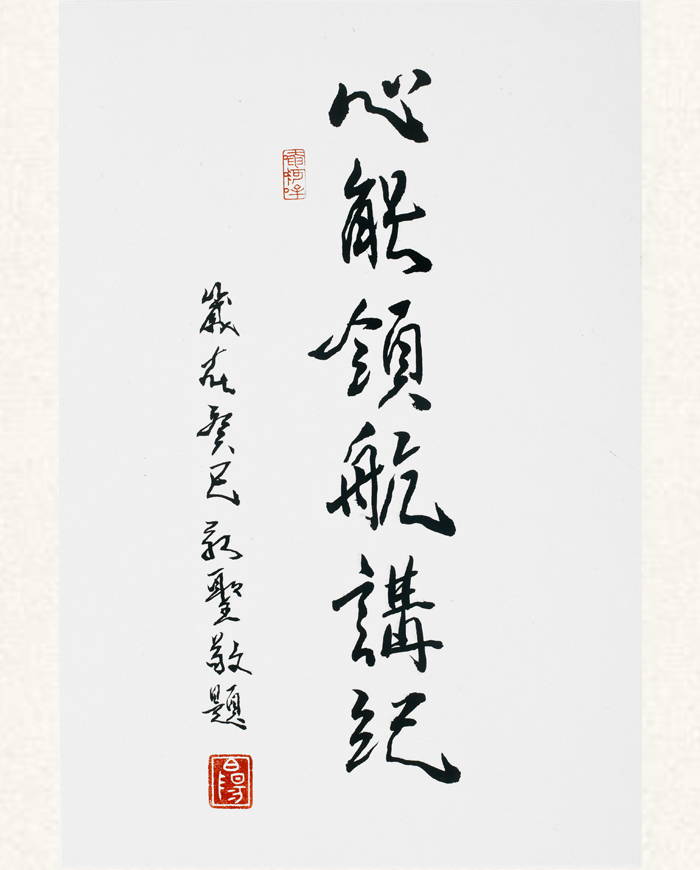 心能領航講記
歲在癸巳敬聖敬題